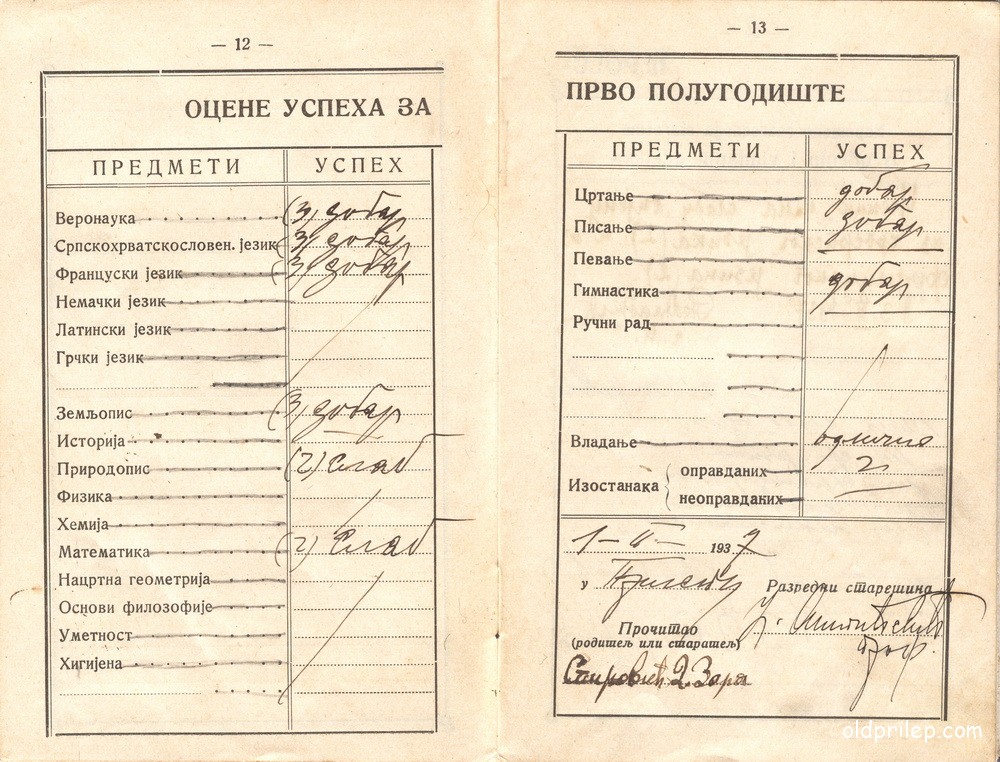 — 12 —
ОЦЕНЕ УСПЕХА ЗА
ПРЕДМЕТИ УСПЕХ
Веронаука (3) добар
Српскохрватскословен. језик (3) добар
Француски језик (3) добар
Немачки језик
Латински језик
Грчки језик
Земљопис (3) добар
Историја
Природопис (2) слаб
Физика
Хемија
Математика (2) слаб
Нацртна геометрија
Основи филозофије
Уметност
Хигијена
— 13 —
ПРВО ПОЛУГОДИШТЕ
ПРЕДМЕТИ УСПЕХ
Цртање добар
Писање добар
Певање
Гимнастика добар
Ручни рад
Владање одлично
Изостанака оправданих 2
неоправданих —
1-II- 1937
у Прилепу Разредни старешина
Прочитао
(родитељ или старатељ)
проф.
Спировић
oldprilep.com